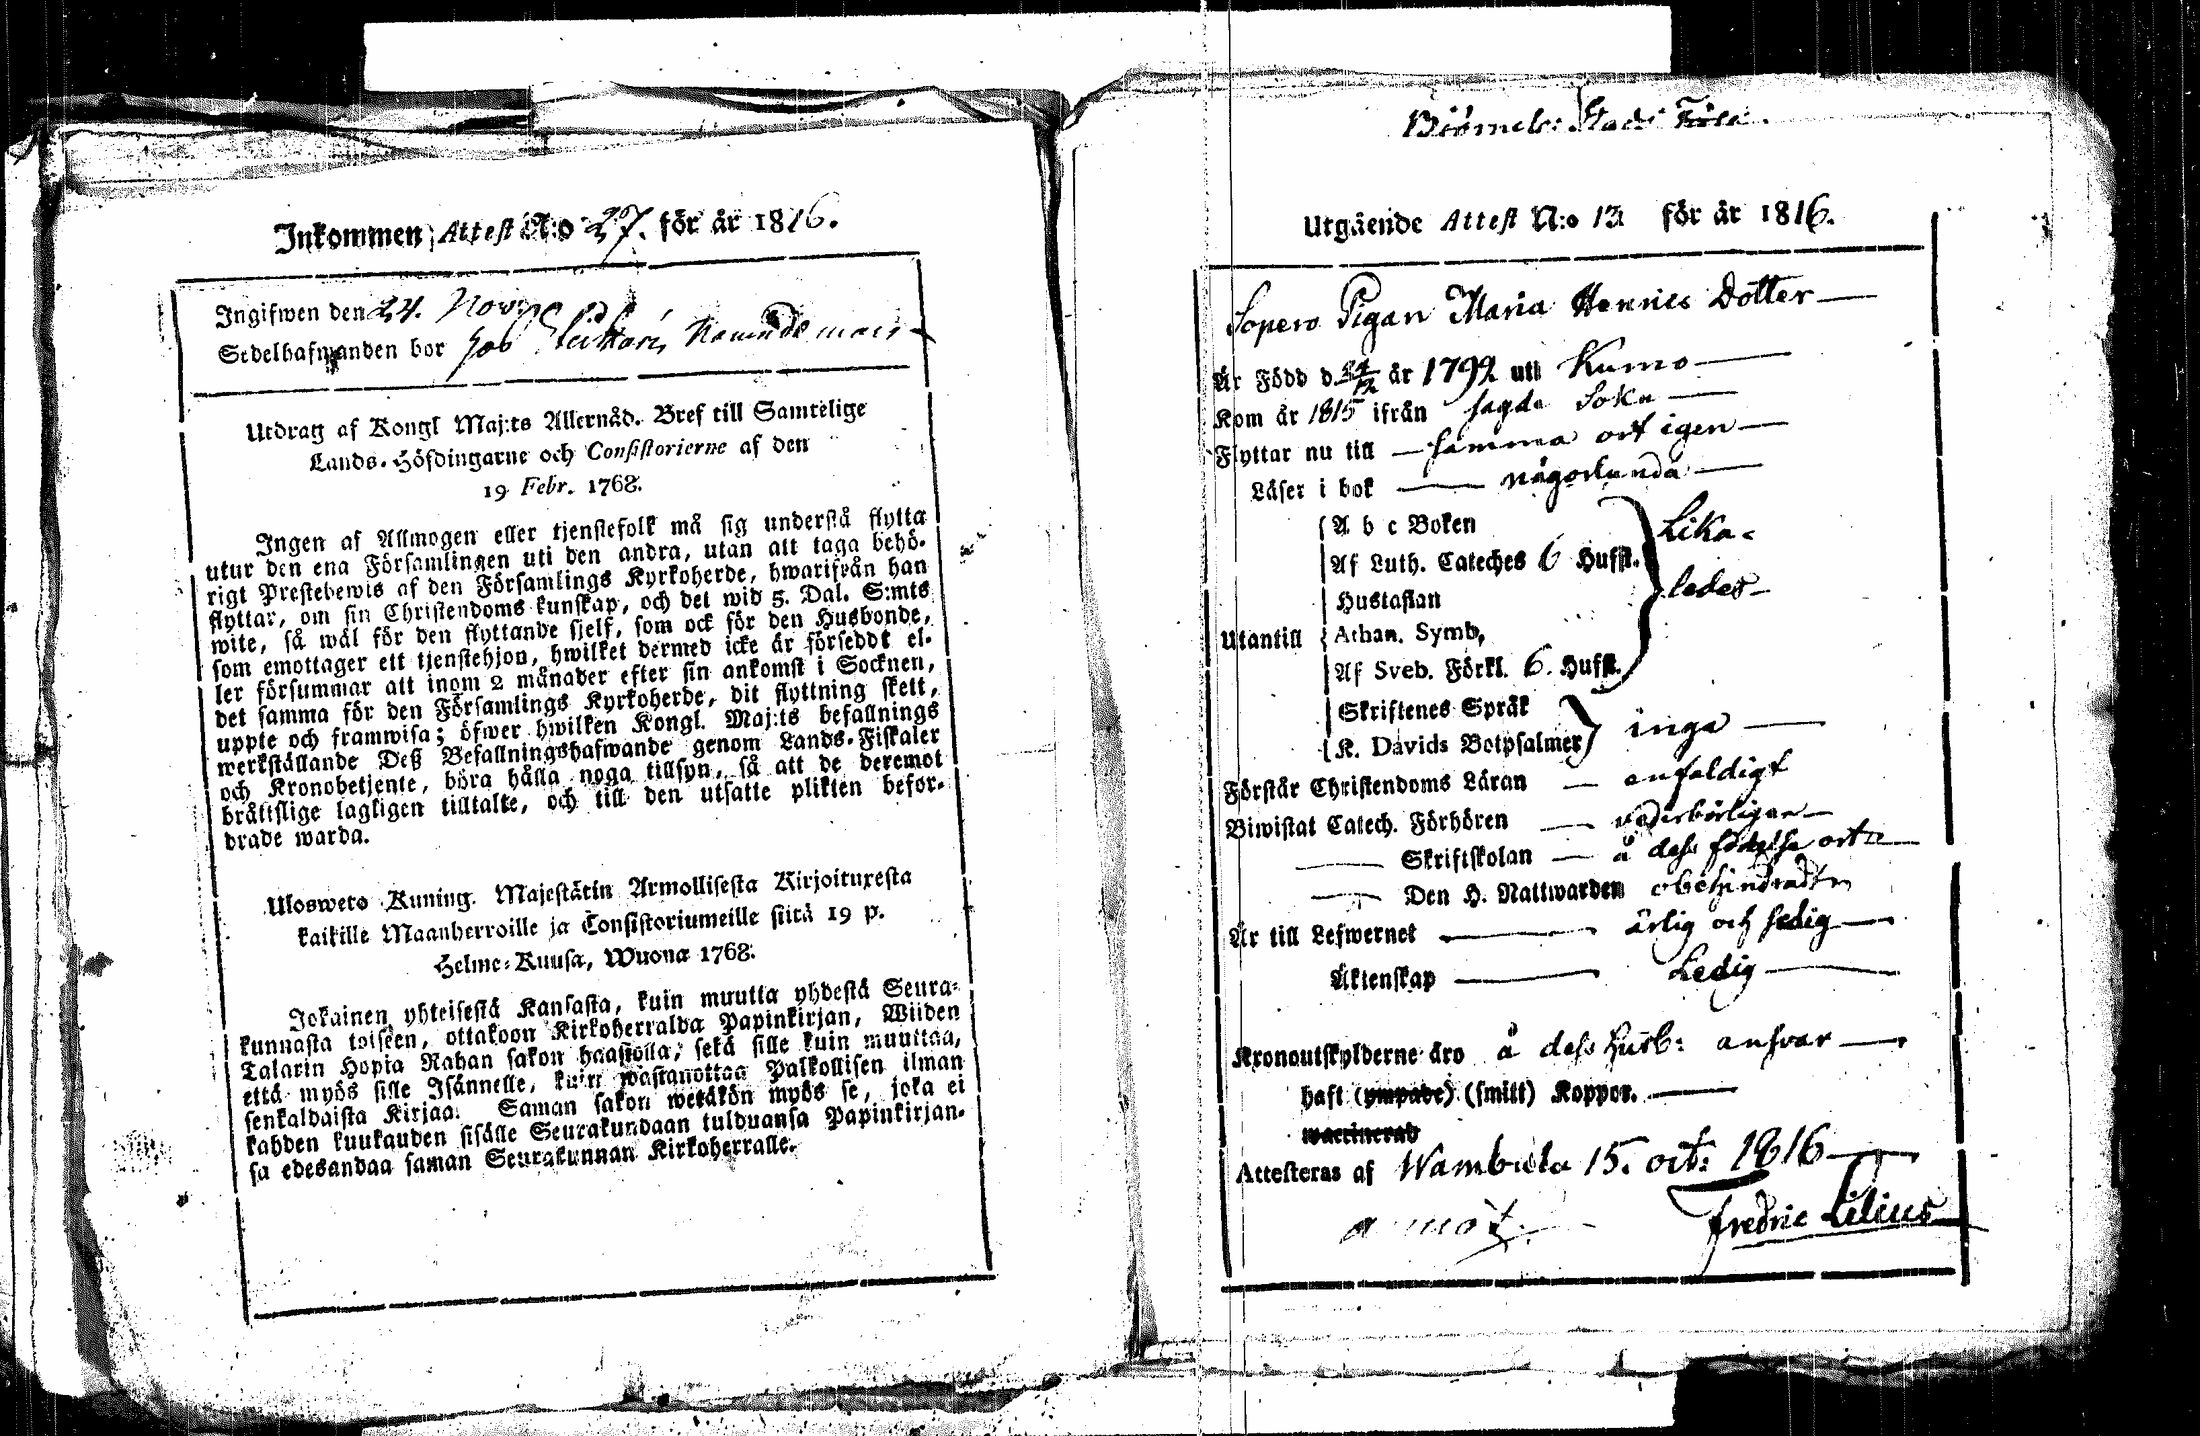 Inkommen Attest N:o 27. för år 1816.
Ingifwen den 24. Nov:
Sedelhafwanden bor hos
Utdrag af Kongl Maj:ts Allernåd. Bref till Samtelige
Lands-Höfdingarne och Consistorierne af den
19 Febr. 1768.
Ingen af Allmogen eller tjenstefolk må sig understå flytta
utur den ena Församlingen uti den andra, utan att taga behö-
rigt Prestebewis af den Församlings Kyrkoherde, hwarifrån han
flyttar, om sin Christendoms kunskap, och det wid 5. Dal. S:mts
wite, så wäl för den flyttande sjelf, som ock för den Husbonde,
som emottager ett tjenstehjon, hwilket dermed icke är förseddt el-
ler försummar att inom 2 månader efter sin ankomst i Socknen,
det samma för den Församlings Kyrkoherde, dit flyttning skett,
uppte och framwisa; öfwer hwilken Kongl. Maj:ts befallnings
werkställande Deß Befallningshafwande genom Lands-Fiskaler
och Kronobetjente, böra hålla noga tillsyn, så att de deremot
bråttslige lagligen tilltalte, och till den utsatte plikten befor-
drade warda.
Ulosweto Kuning. Majestätin Armollisesta Kirjoituxesta
kaikille Maanherroille ja Consistoriumeille siitä 19 p.
Helme-Kuusa, Wuona 1768.
Jokainen yhteisestä Kansasta, kuin muutta yhdestä Seura-
kunnasta toiseen, ottakoon Kirkoherralda Papinkirjan, Wiiden
Talarin Hopia Rahan sakon haastolla, sekä sille kuin muuttaa,
että myös sille Isännelle, kuin wastanottaa Palkollisen ilman
senkaldaista Kirjaa. Saman sakon wetäkön myös se, joka ei
kahden kuukauden sisälle Seurakundaan tulduansa Papinkirjan-
sa edesandaa saman Seurakunnan Kirkoherralle.
Utgående Attest N:o 13 för år 1816.
Pigan Maria Henrics Dotter
Är Född d 24/12 år 1792 uti Kumo
Kom år 1815 ifrån sagde Sokn
Flyttar nu till samma ort igen
Läser i bok någorlunda
A b c Boken
Af Luth. Cateches 6 Hufst. Lika-
Hustaflan ledes
Utantill Athan. Symb,
Af Sveb. Förkl. 6. Hufst.
Skriftenes Språk
K. Davids Botpsalmer inga
Förstår Christendoms Läran enfaldigt
Biwistat Catech. Förhören vederbörligen
Skriftskolan å dess födelse ort
Den H. Nattwarden obehindradt
Är till Lefwernet ärlig och sedig
Äktenskap Ledig
Kronoutskylderne äro å dess husb: ansvar
haft (ympade) (smitt) Koppor.
waccinerad
Attesteras af Wambula 15. oct: 1816
Fredric Lilius